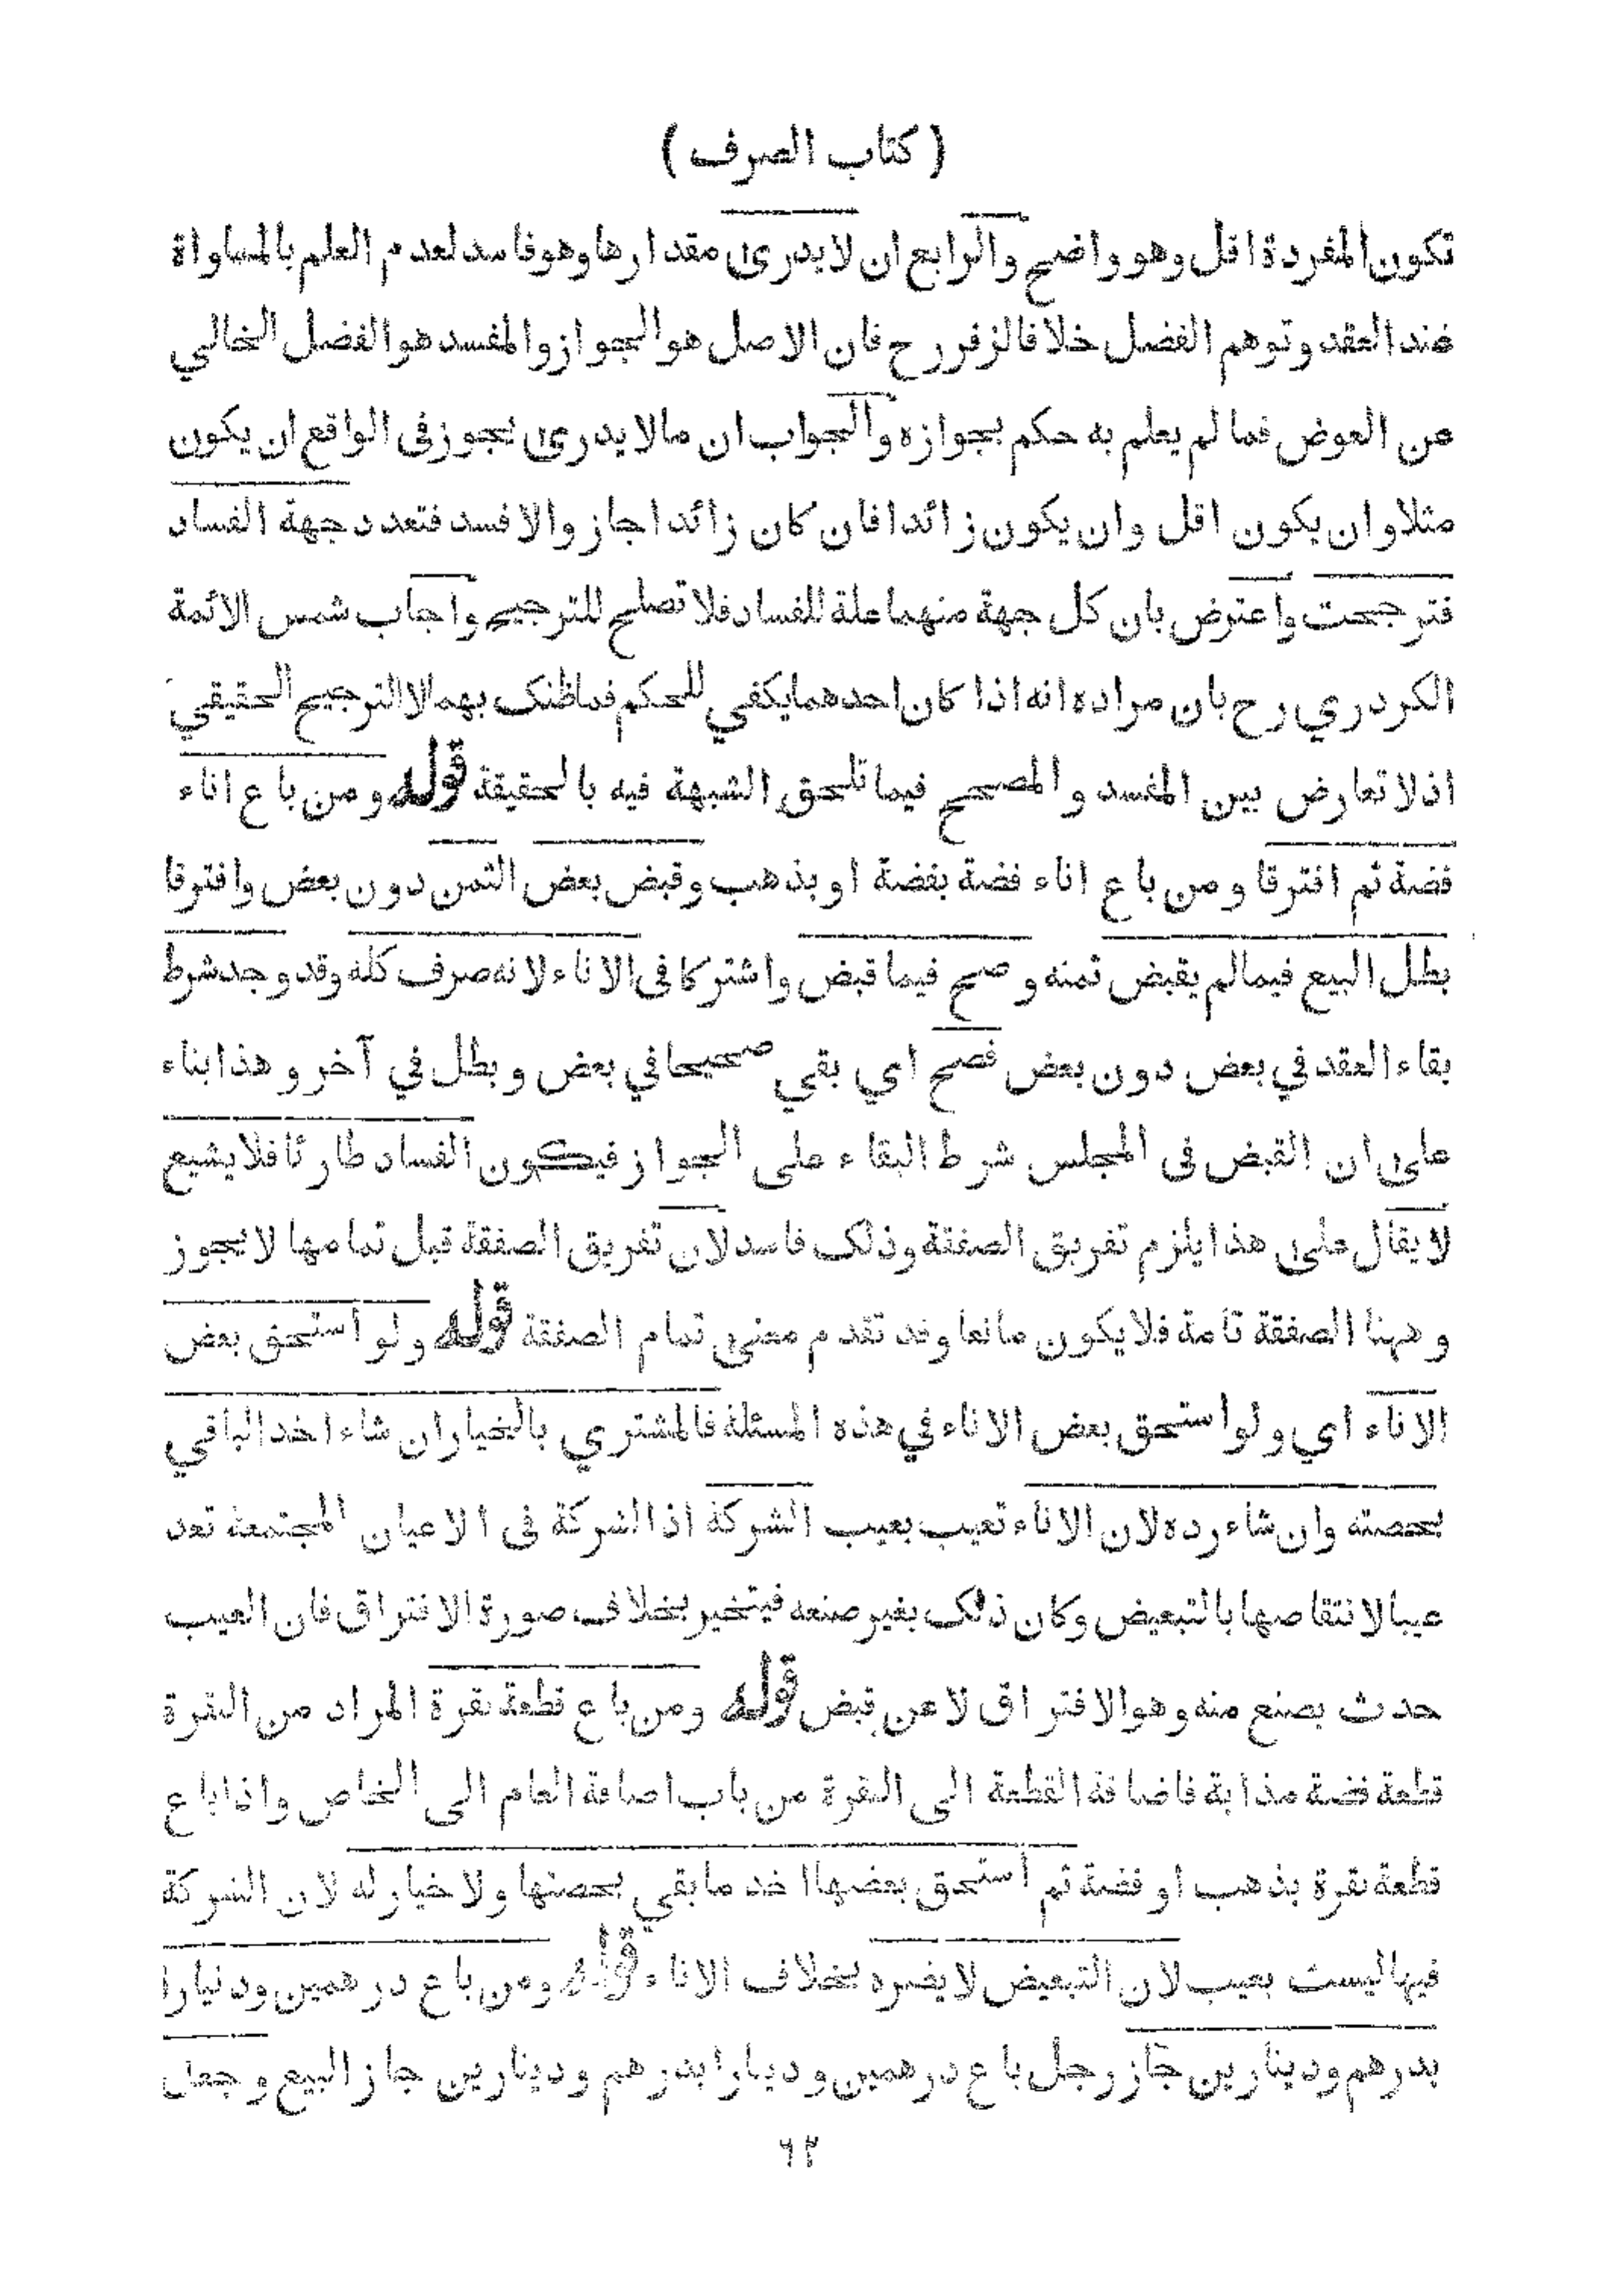 ( كتاب الصرف )
تكون المفردة اقل وهو واضح والرابع ان لا يدرى مقدارها وهو فاسد لعدم العلم بالمساواة
عند العقد وتوهم الفضل خلافا لزفر رح فان الاصل هو الجواز والمفسد هو الفضل الخالي
عن العوض فما لم يعلم به حكم بجوازه والجواب ان مالا يدرى يجوز فى الواقع ان يكون
مثلا وان يكون اقل وان يكون زائدا فان كان زائدا جاز والا فسد فتعدد جهة الفساد
فترجحت واعترض بان كل جهة منهما علة للفساد فلا تصلح للترجيح واجاب شمس الائمة
الكردري رح بان مراده انه اذا كان احدهما يكفي للحكم فما ظنك بهما لا الترجيح الحقيقي
اذ لا تعارض بين المفسد والمصحح فيما تلحق الشبهة فيه بالحقيقة قوله ومن باع اناء
فضة ثم افترقا ومن باع اناء فضة بفضة او بذهب وقبض بعض الثمن دون بعض وافترقا
بطل البيع فيما لم يقبض ثمنه وصح فيما قبض واشتركا فى الاناء لانه صرف كله وقد وجد شرط
بقاء العقد في بعض دون بعض فصح اي بقي صحيحا في بعض وبطل في آخر وهذا بناء
على ان القبض فى المجلس شرط البقاء على الجواز فيكون الفساد طارئا فلا يشيع
لا يقال على هذا يلزم تفريق الصفقة وذلك فاسد لان تفريق الصفقة قبل تمامها لا يجوز
وههنا الصفقة تامة فلا يكون مانعا وقد تقدم معنى تمام الصفقة قوله ولو استحق بعض
الاناء اي ولو استحق بعض الاناء في هذه المسئلة فالمشتري بالخيار ان شاء اخذ الباقي
بحصته وان شاء رده لان الاناء تعيب بعيب الشركة اذ الشركة فى الاعيان المجتمعة تعد
عيبا لانتقاصها بالتبعيض وكان ذلك بغير صنعه فيتخير بخلاف صورة الافتراق فان العيب
حدث بصنع منه وهو الافتراق لا عن قبض قوله ومن باع قطعة نقرة المراد من النقرة
قطعة فضة مذابة فاضافة القطعة الى النقرة من باب اضافة العام الى الخاص واذا باع
قطعة نقرة بذهب او فضة ثم استحق بعضها اخذ ما بقي بحصتها ولا خيار له لان الشركة
فيها ليست بعيب لان التبعيض لا يضره بخلاف الاناء قوله ومن باع درهمين ودنيارا
بدرهم ودينارين جاز رجل باع درهمين ودينارا بدرهم ودينارين جاز البيع وجعل
٦٣